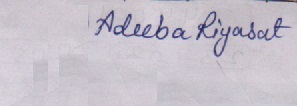 Adeeba Riyasat